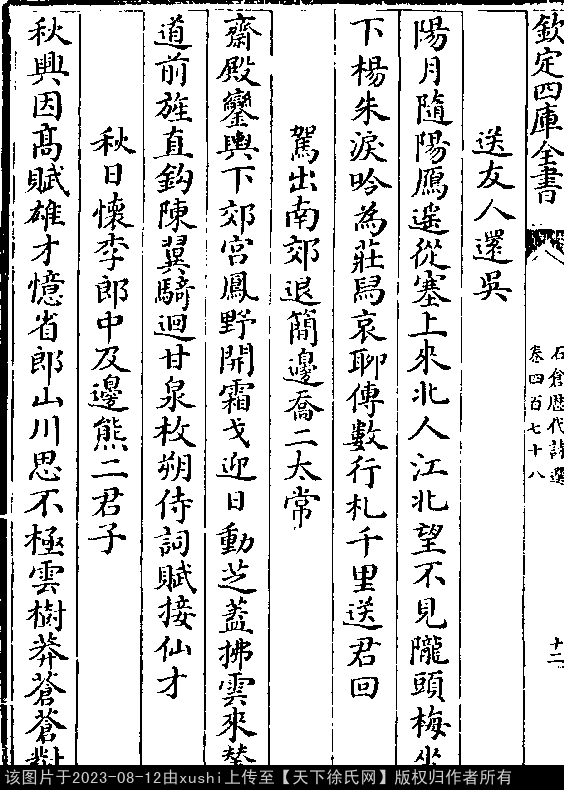 欽定四庫全書
石倉歴代詩選
卷四百七十八
十二
送友人還吳
陽月隨陽鴈遥從塞上來北人江北望不見隴頭梅坐
下楊朱淚吟為莊舄哀聊傳數行札千里送君回
駕出南郊退簡邊喬二太常
齋殿鑾輿下郊宫鳳野開霜戈迎日動芝葢拂雲來輦
道前旌直鈎陳翼騎迴甘泉枚朔侍詞賦接仙才
秋日懷李郎中及邊熊二君子
秋興因高賦雄才憶省郎山川思不極雲樹莽蒼蒼對
该图片于2023-08-12由xushi上传至【天下徐氏网】版权归作者所有